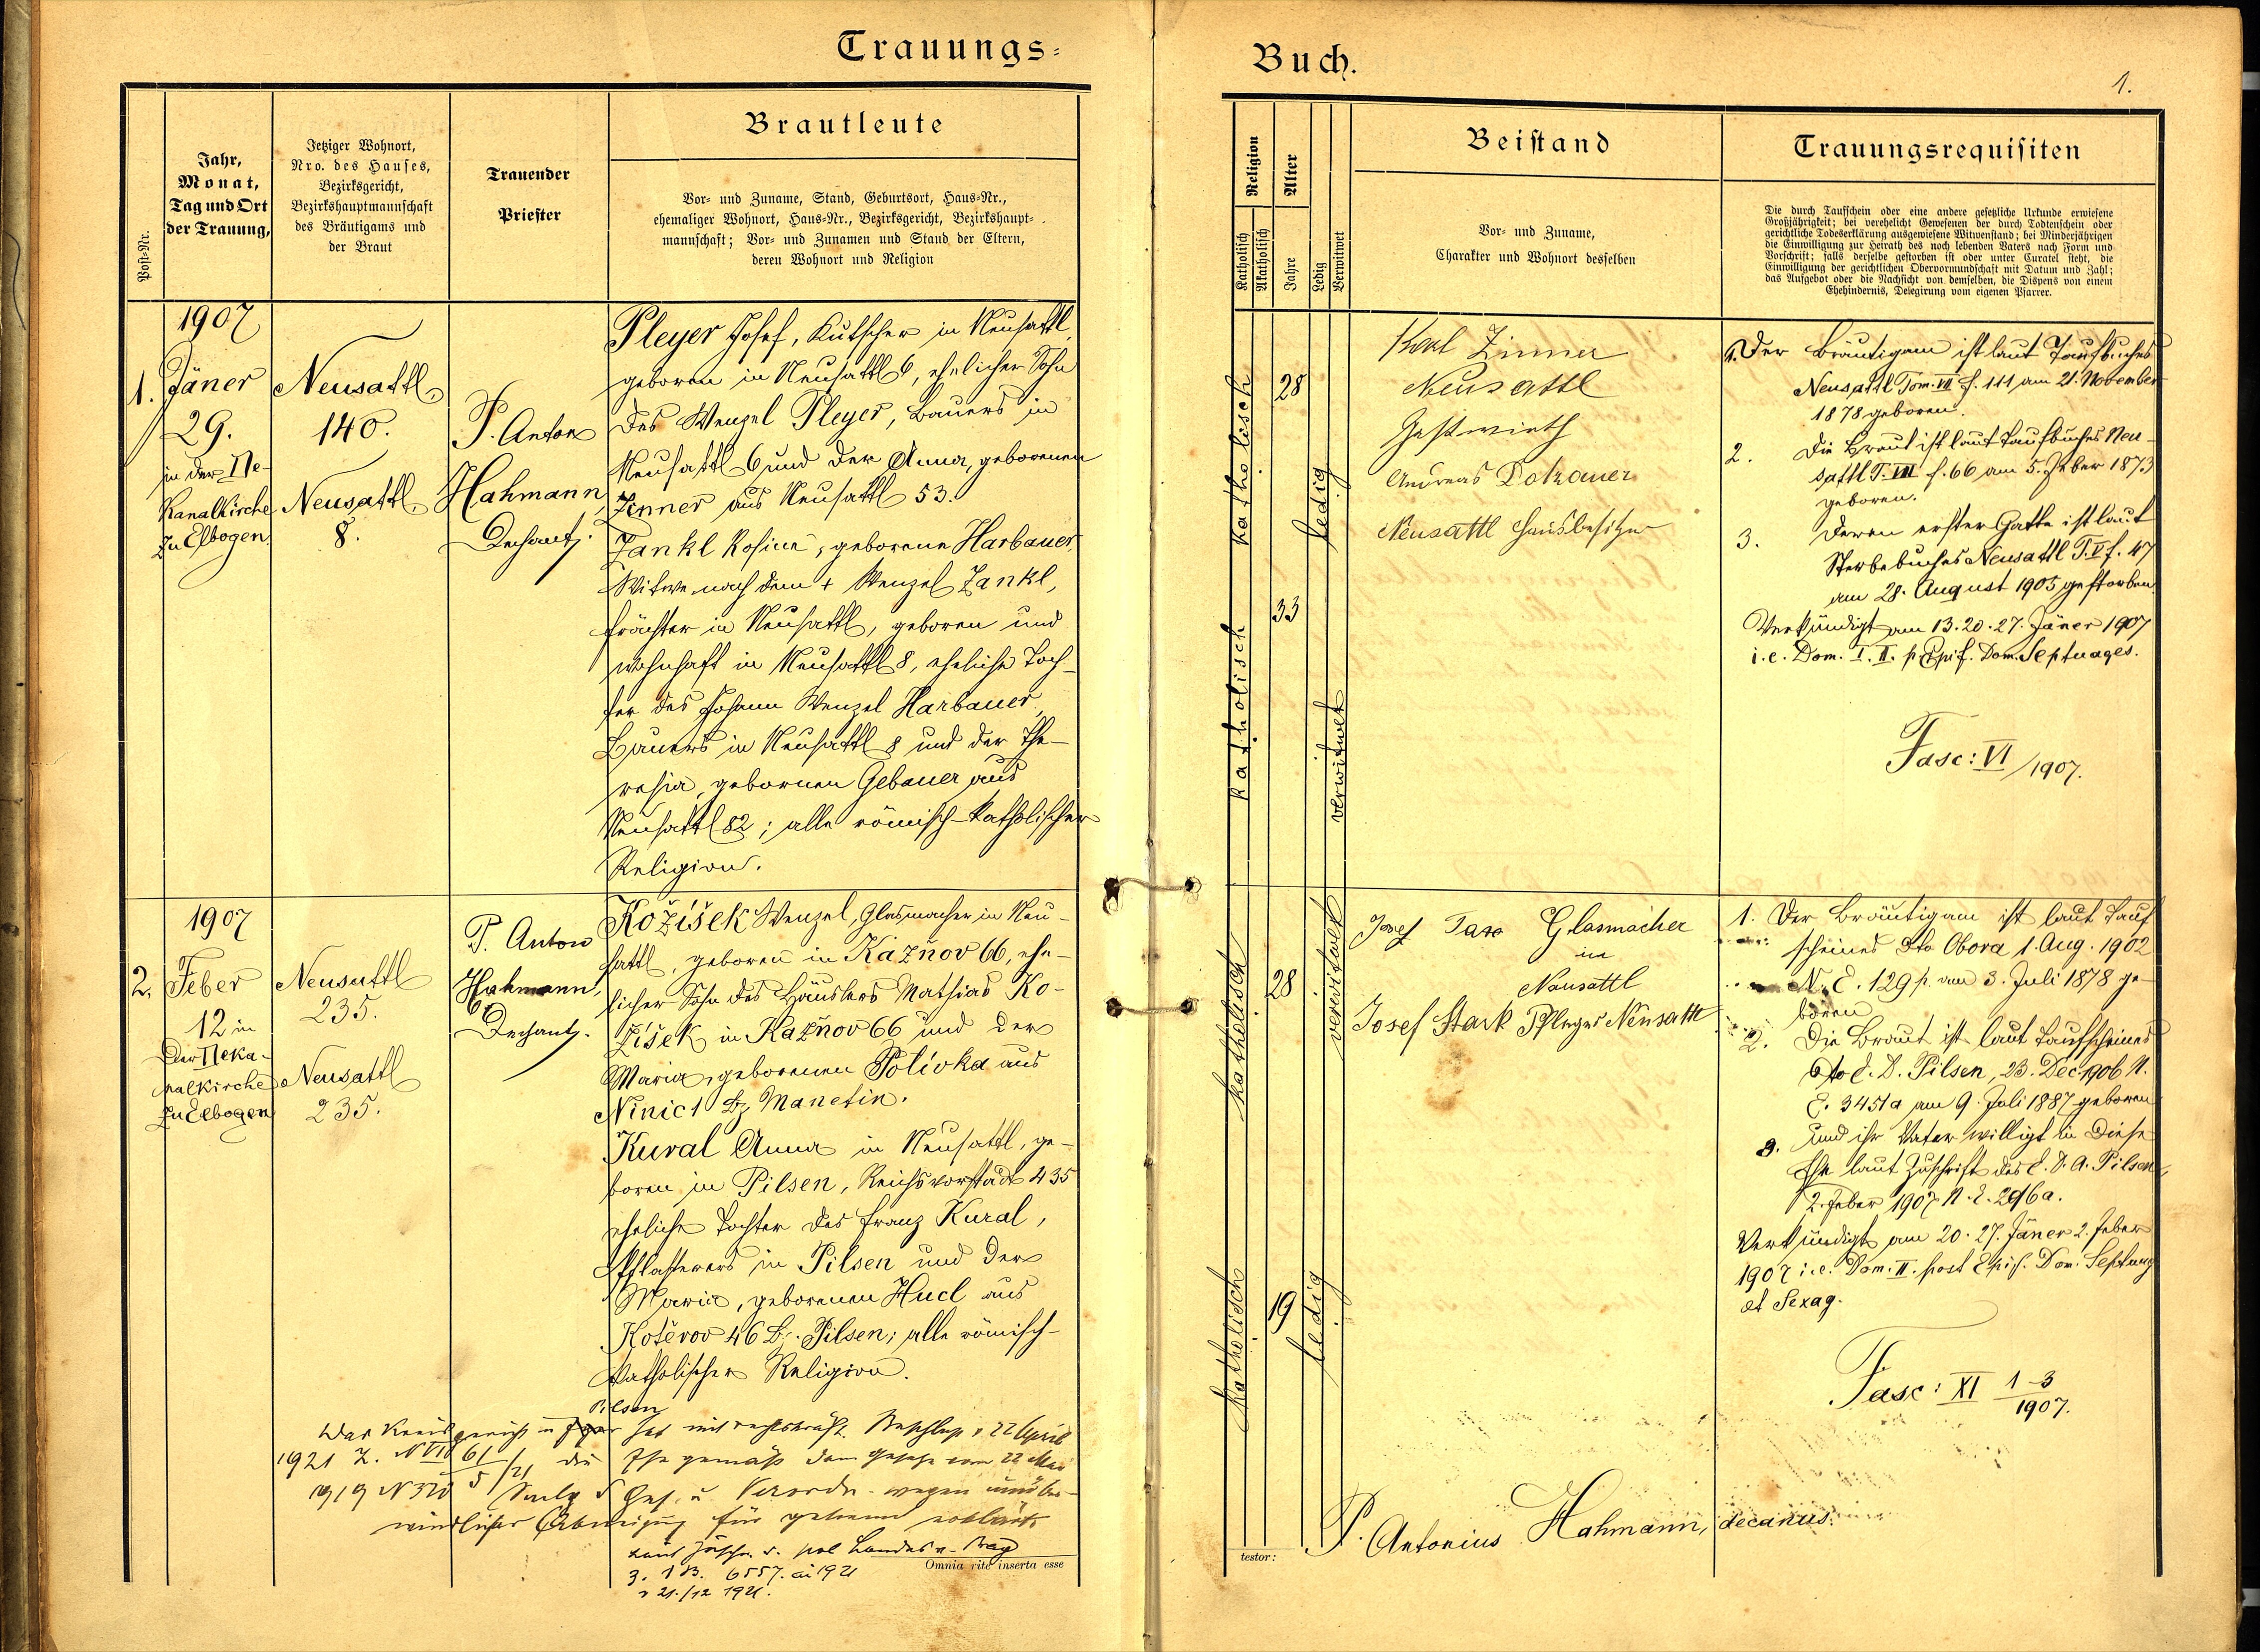 Trauungs-
Buch.
1.
Post-Nr.
Jahr,
Monat,
Tag und Ort
der Trauung,
Jetziger Wohnort,
Nro. des Hauses,
Bezirksgericht,
Bezirkshauptmannschaft
des Bräutigams und
der Braut
Trauender
Priester
Brautleute
Vor- und Zuname, Stand, Geburtsort, Haus-Nr.,
ehemaliger Wohnort, Haus-Nr., Bezirksgericht, Bezirkshaupt-
mannschaft; Vor- und Zunamen und Stand der Eltern,
deren Wohnort und Religion
Religion
Katholisch
Akatholisch
Alter
Jahre
Ledig
Verwitwet
Beistand
Vor- und Zuname,
Charakter und Wohnort desselben
Trauungsrequisiten
Die durch Taufschein oder eine andere gesetzliche Urkunde erwiesene
Großjährigkeit; bei verehelicht Gewesenen der durch Todtenschein oder
gerichtliche Todeserklärung ausgewiesene Witwenstand; bei Minderjährigen
die Einwilligung zur Heirath des noch lebenden Vaters nach Form und
Vorschrift; falls derselbe gestorben ist oder unter Curatel steht, die
Einwilligung der gerichtlichen Obervormundschaft mit Datum und Zahl;
das Aufgebot oder die Nachsicht von demselben, die Dispens von einem
Ehehindernis, Delegirung vom eigenen Pfarrer.
1.
1907
Jäner
29.
in der De-
kanalkirche
zu Elbogen
Neusattl
140.
Neusattl
8.
P. Anton
Hahmann,
Dechant.
Pleyer Josef, Kutscher in Neusattl,
geboren in Neusattl 6, ehelicher Sohn
des Wenzel Pleyer, Bauers in
Neusattl 6 und der Anna, geborenen
Zenner aus Neusattl 53.
Zankl Rosina, geborene Harbauer,
Witwe nach dem + Wenzel Zankl,
Frächter in Neusattl, geboren und
wohnhaft in Neusattl 8, eheliche Toch-
ter des Johann Wenzel Harbauer,
Bauers in Neusattl 8 und der The-
resia, gebornen Gebauer aus
Neusattl 82; alle römisch-katholischer
Religion.
katholisch
28
ledig
katholisch
33
verwitwet
Karl Zinner
Neusattl
Gastwirth
Andreas Dotzauer
Neusattl Hausbesitzer
1. Der Bräutigam ist laut Taufbuches
Neusattl Tom. VII f. 111 am 21. November
1878 geboren.
2. Die Braut ist laut Taufbuches Neu-
sattl T. VII f. 66 am 5. Feber 1873
geboren.
3. Deren erster Gatte ist laut
Sterbebuches Neusattl T. V f. 47
am 28. August 1905 gestorben.
Verkündigt am 13. 20. 27. Jäner 1907
i. e. Dom. I. II. p. Epif. Dom. Septuages.
Fasc: VI/1907.
2.
1907
Feber
12 in
der Deka-
nalkirche
zu Elbogen
Neusattl
235.
Neusattl
235.
P. Anton
Hahmann,
Dechant.
Kožíšek Wenzel, Glasmacher in Neu-
sattl, geboren in Kažnov 66, ehe-
licher Sohn des Häuslers Mathias Ko-
žíšek in Kažnov 66 und der
Maria, geborenen Polívka aus
Ninic 1 Bz Manetin.
Kural Anna in Neusattl, ge-
boren in Pilsen, Reichsvorstadt 435
eheliche Tochter des Franz Kural,
Pflasterers in Pilsen und der
Maria, geborenen Hucl aus
Kotěrov 46 Bz. Pilsen; alle römisch-
katholischer Religion.
katholisch
28
katholisch
19
ledig
Josef Glasmacher
in
Neusattl
Josef Stark Pfleger Neusattl
1. Der Bräutigam ist laut Tauf-
scheines dto Obora 1. Aug. 1902
N. E. 129 p. am 3. Juli 1878 ge-
boren
2. Die Braut ist laut Taufscheines
dto E. D. Pilsen, 23. Dec. 1906 N.
E. 3451a am 9. Juli 1887 geboren
3. und ihr Vater willigt in diese
Ehe laut Zuschrift des E. D. A. Pilsen
2. Feber 1907 N. E. 296a.
Verkündigt am 20. 27. Jäner 2. Feber
1907 i. e. Dom. II. post Epif. Dom. Septuag
et Sexag.
Fasc: XI 1-3/1907.
Pilsen
Das Kreisgericht in hat mit rechtskräft. Beschluß v 22 April
1921 Z. N VII 61/5/21 die Ehe gemäß dem Gesetze vom 22 Mai
1919 N 320 Smlg d Ges. u. Verordn. wegen unüber-
windlicher Abneigung für getrennt erklärt
laut Zuschr. d. pol Landes v. Prag
Z. 1 B. 6557. ai 1921
v 21./12 1921.
Omnia rite inserta esse
testor:
P. Antonius Hahmann, decanus.